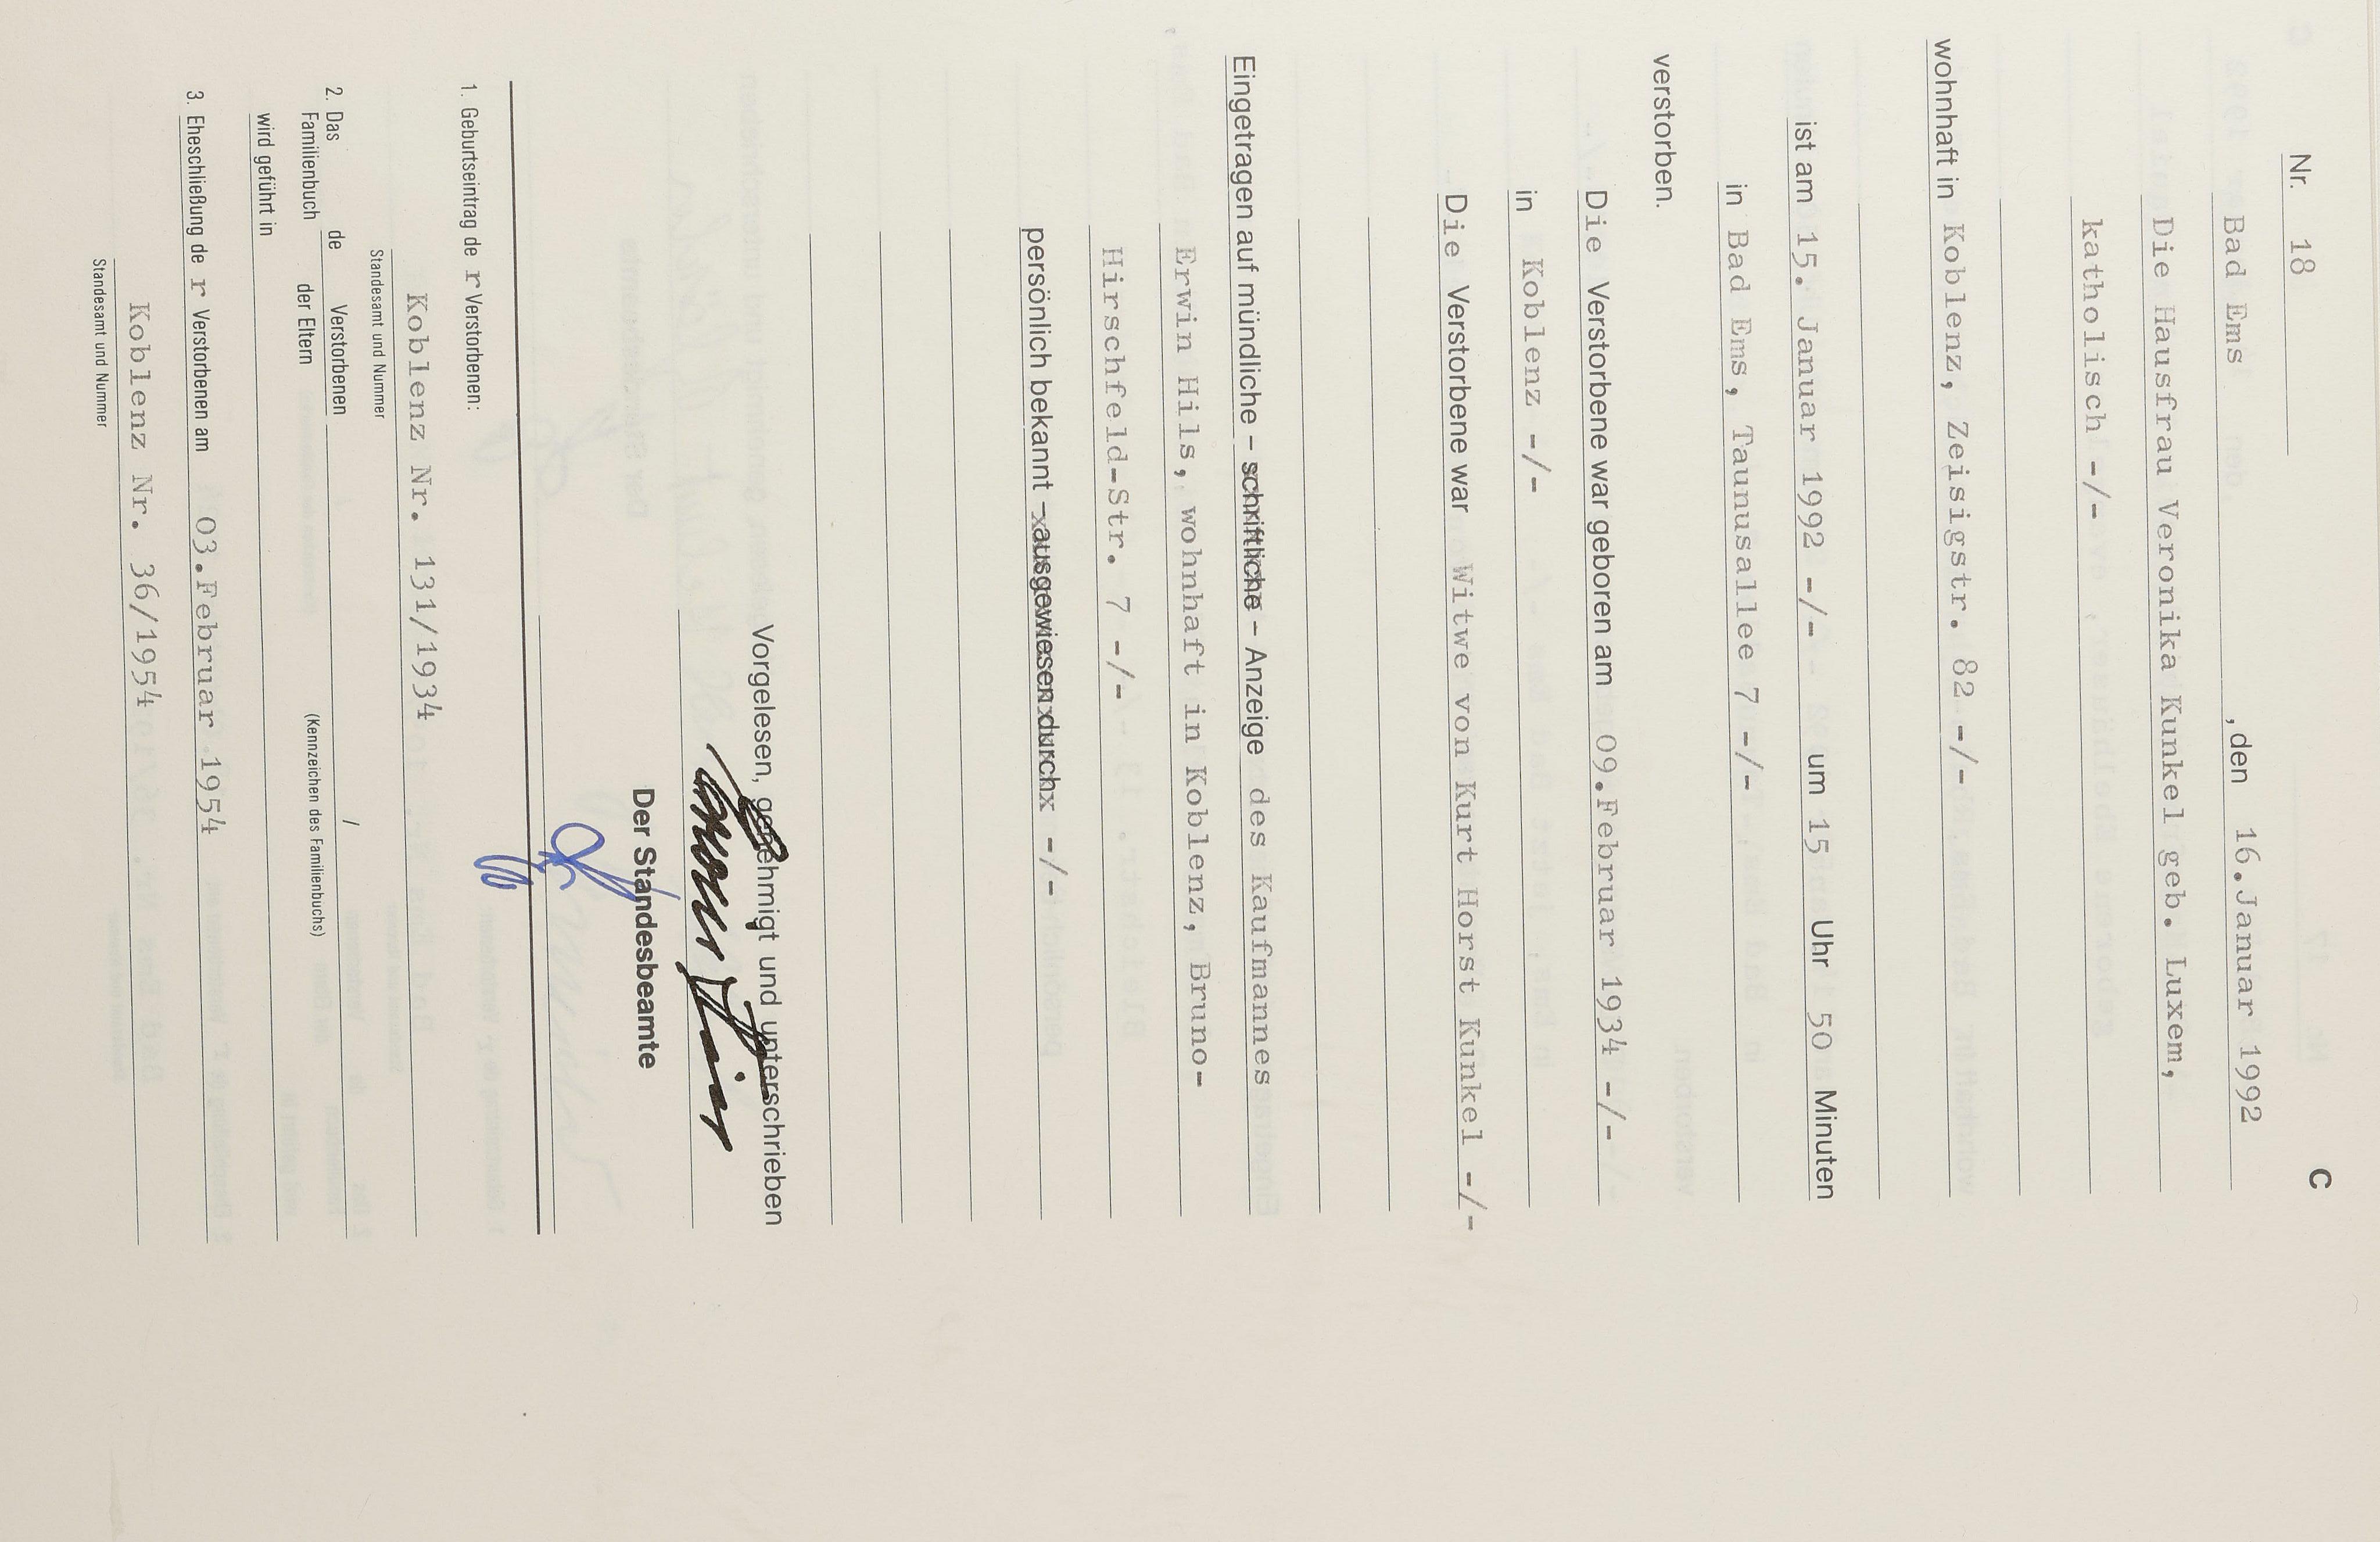 C
Nr. 18
Bad Ems , den 16.Januar 1992
Die Hausfrau Veronika Kunkel geb. Luxem,
katholisch -/-
wohnhaft in Koblenz, Zeisigstr. 82 -/-
ist am 15. Januar 1992 -/- um 15 Uhr 50 Minuten
in Bad Ems, Taunusallee 7 -/-
verstorben.
Die Verstorbene war geboren am 09.Februar 1934 -/-
in Koblenz -/-
Die Verstorbene war Witwe von Kurt Horst Kunkel -/-
Eingetragen auf mündliche – schriftliche – Anzeige des Kaufmannes
Erwin Hils, wohnhaft in Koblenz, Bruno-
Hirschfeld-Str. 7 -/-
persönlich bekannt – ausgewiesen durch -/-
Vorgelesen, genehmigt und unterschrieben
Der Standesbeamte
1. Geburtseintrag de r Verstorbenen:
Koblenz Nr. 131/1934
Standesamt und Nummer
2. Das Familienbuch de Verstorbenen /
der Eltern (Kennzeichen des Familienbuchs)
wird geführt in
3. Eheschließung de r Verstorbenen am 03.Februar 1954
Koblenz Nr. 36/1954
Standesamt und Nummer